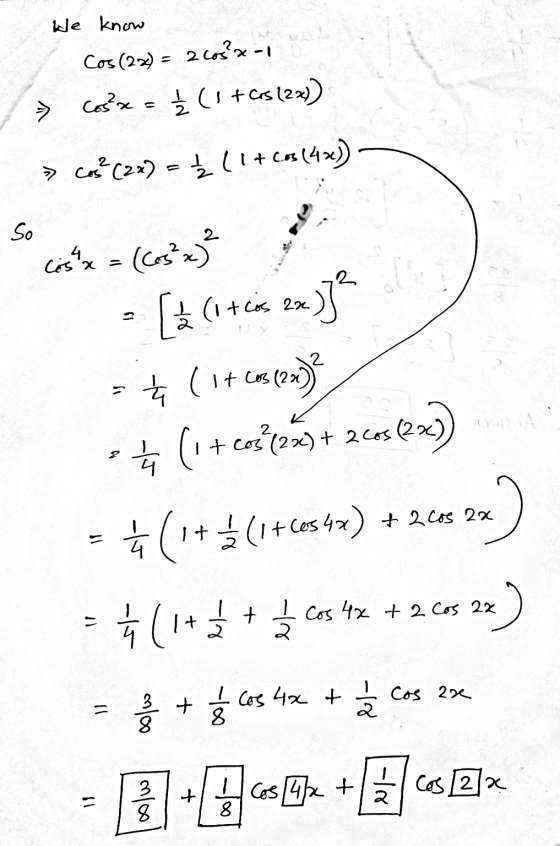 We know
Cos(2x) = 2cos²x - 1
⇒ cos²x = 1/2 (1 + cos(2x))
⇒ cos²(2x) = 1/2 (1 + cos(4x))
So
cos⁴x = (cos²x)²
= [1/2 (1 + cos 2x)]²
= 1/4 (1 + cos(2x))²
= 1/4 (1 + cos²(2x) + 2cos(2x))
= 1/4 (1 + 1/2 (1 + cos4x) + 2cos 2x)
= 1/4 (1 + 1/2 + 1/2 cos 4x + 2 cos 2x)
= 3/8 + 1/8 cos 4x + 1/2 cos 2x
= 3/8 + 1/8 cos 4x + 1/2 cos 2x